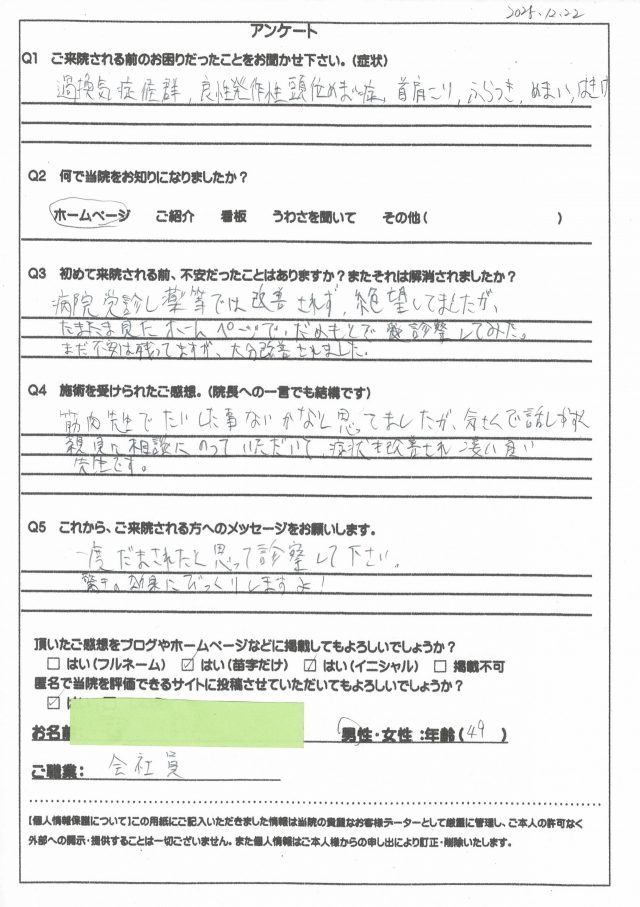 2025.12.22
アンケート
Q1 ご来院される前のお困りだったことをお聞かせ下さい。(症状)
過換気症候群，良性発作性頭位めまい症，首肩こり，ふらつき，めまい，はきけ
Q2 何で当院をお知りになりましたか？
ホームページ ご紹介 看板 うわさを聞いて その他( )
Q3 初めて来院される前、不安だったことはありますか？またそれは解消されましたか？
病院受診し薬等では改善されず，絶望してましたが，
たまたま見たホームページで，だめもとで診察してみた。
まだ不安は残ってますが，大分改善されました．
Q4 施術を受けられたご感想。(院長への一言でも結構です)
筋肉先生でたいした事ないかなと思ってましたが，気さくで話しやすく
親身に相談にのっていただいて，症状も改善され凄い良い
先生です。
Q5 これから、ご来院される方へのメッセージをお願いします。
一度だまされたと思って診察して下さい．
驚き。効果にびっくりしますよ！
頂いたご感想をブログやホームページなどに掲載してもよろしいでしょうか？
□ はい(フルネーム) ☑ はい(苗字だけ) ☑ はい(イニシャル) □ 掲載不可
匿名で当院を評価できるサイトに投稿させていただいてもよろしいでしょうか？
☑
お名前 男性・女性 :年齢( 49 )
ご職業: 会社員
【個人情報保護について】この用紙にご記入いただきました情報は当院の貴重なお客様データーとして厳重に管理し、ご本人の許可なく
外部への開示・提供することは一切ございません。また個人情報はご本人様からの申し出により訂正・削除いたします。